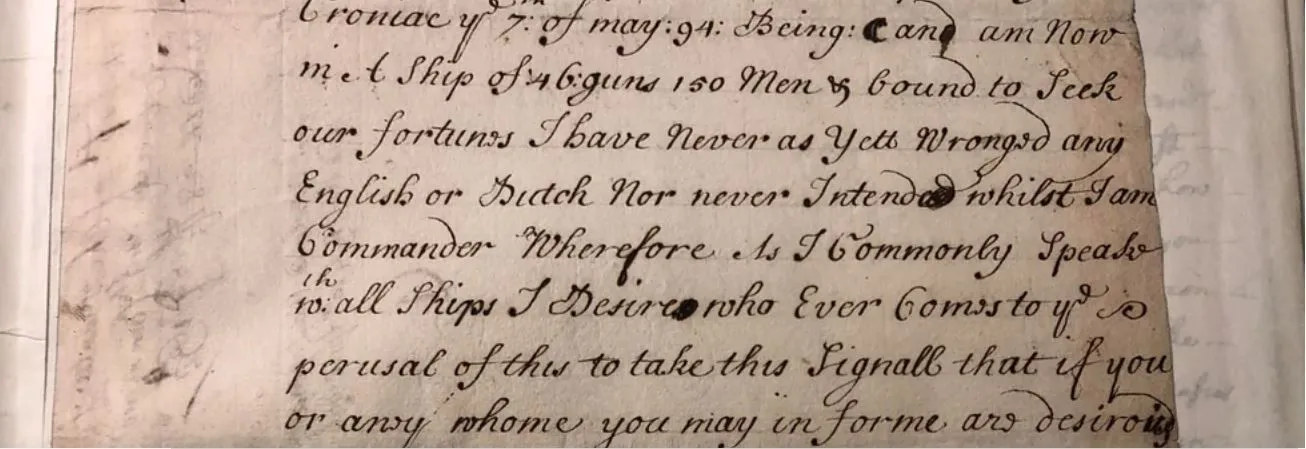 Croniae ye 7th: of may: 94: Being: and am Now
in A Ship of 46: guns 150 Men & bound to Seek
our fortunes I have Never as Yett Wronged any
English or Dutch Nor never Intended whilst I am
Commander Wherefore As I Commonly Speake
wth: all Ships I Desire who Ever Comes to ye
perusal of this to take this Signall that if you
or any whome you may in forme are desirous